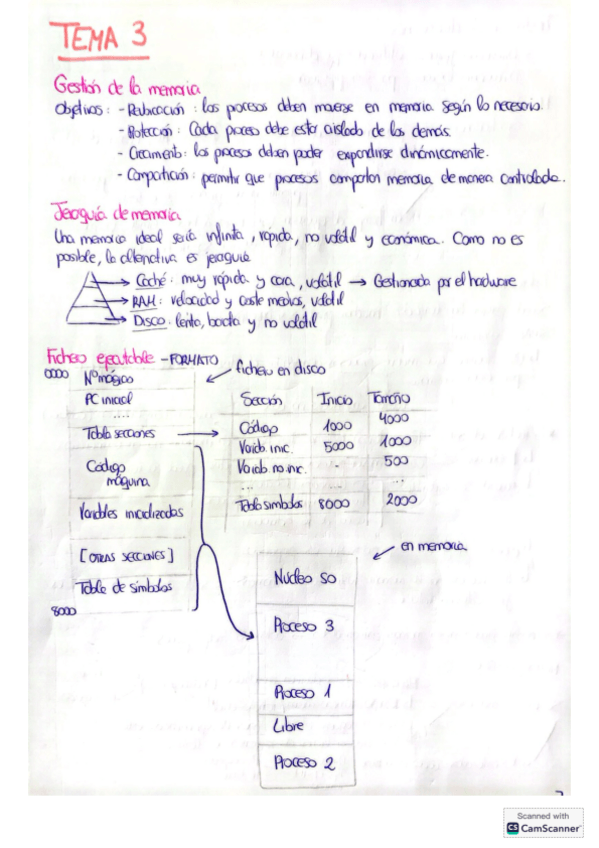 TEMA 3
Gestión de la memoria
Objetivos: - Reubicación: los procesos deben moverse en memoria según lo necesario.
- Protección: Cada proceso debe estar aislado de los demás.
- Crecimiento: los procesos deben poder expandirse dinámicamente.
- Compartición: permitir que procesos compartan memoria de manera controlada.
Jerarquía de memoria
Una memoria ideal sería infinita, rápida, no volátil y económica. Como no es
posible, la alternativa es jerarquía
→ Caché: muy rápida y cara, volátil → Gestionada por el hardware
→ RAM: velocidad y coste medios, volátil
→ Disco: lento, barato y no volátil
Fichero ejecutable - FORMATO
fichero en disco
0000 Nº mágico
PC inicial
....
Tabla secciones
Código
máquina
Variables inicializadas
[OTRAS SECCIONES]
Tabla de símbolos
8000
Sección Inicio Tamaño
Código 1000 4000
Variab. inic. 5000 1000
Variab. no inic. - 500
... ...
Tabla símbolos 8000 2000
en memoria
Núcleo SO
Proceso 3
Proceso 1
Libre
Proceso 2
Scanned with
CS CamScanner